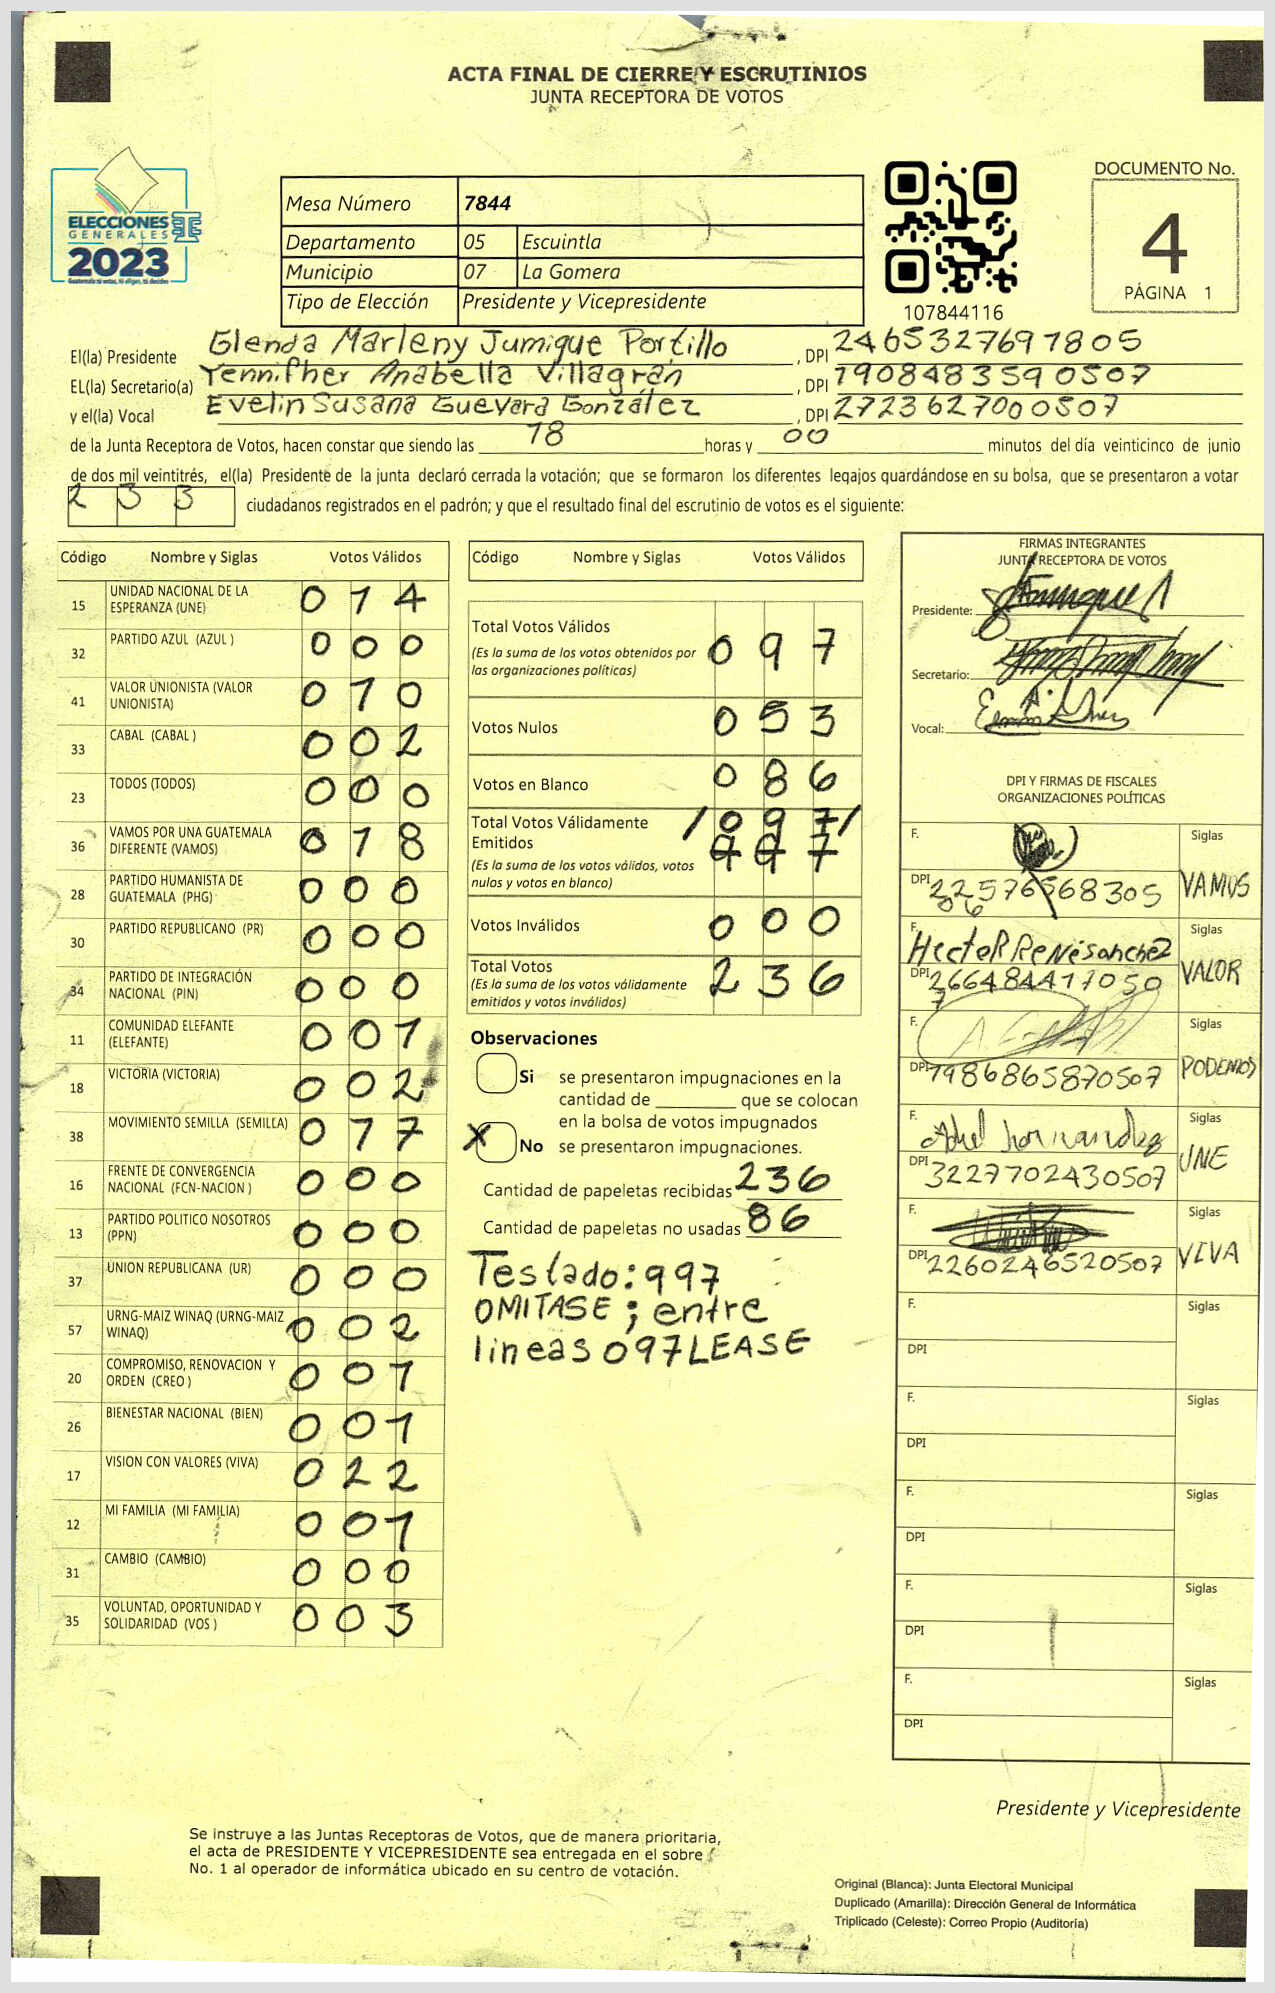 ACTA FINAL DE CIERRE Y ESCRUTINIOS
JUNTA RECEPTORA DE VOTOS
ELECCIONES
GENERALES
2023
Guatemala tú votas, tú eliges, tú decides
Mesa Número 7844
Departamento 05 Escuintla
Municipio 07 La Gomera
Tipo de Elección Presidente y Vicepresidente
107844116
DOCUMENTO No.
4
PÁGINA 1
El(la) Presidente Glenda Marleny Jumique Portillo, DPI 2465327697805
EL(la) Secretario(a) Yennifher Anabella Villagrán, DPI 1908483590507
y el(la) Vocal Evelin Susana Guevara González, DPI 2723627000507
de la Junta Receptora de Votos, hacen constar que siendo las 18 horas y 00 minutos del día veinticinco de junio
de dos mil veintitrés, el(la) Presidente de la junta declaró cerrada la votación; que se formaron los diferentes legajos guardándose en su bolsa, que se presentaron a votar
233 ciudadanos registrados en el padrón; y que el resultado final del escrutinio de votos es el siguiente:
Código Nombre y Siglas Votos Válidos
15 UNIDAD NACIONAL DE LA ESPERANZA (UNE) 014
32 PARTIDO AZUL (AZUL ) 000
41 VALOR UNIONISTA (VALOR UNIONISTA) 010
33 CABAL (CABAL ) 002
23 TODOS (TODOS) 000
36 VAMOS POR UNA GUATEMALA DIFERENTE (VAMOS) 018
28 PARTIDO HUMANISTA DE GUATEMALA (PHG) 000
30 PARTIDO REPUBLICANO (PR) 000
34 PARTIDO DE INTEGRACIÓN NACIONAL (PIN) 000
11 COMUNIDAD ELEFANTE (ELEFANTE) 001
18 VICTORIA (VICTORIA) 002
38 MOVIMIENTO SEMILLA (SEMILLA) 017
16 FRENTE DE CONVERGENCIA NACIONAL (FCN-NACION ) 000
13 PARTIDO POLITICO NOSOTROS (PPN) 000
37 UNION REPUBLICANA (UR) 000
57 URNG-MAIZ WINAQ (URNG-MAIZ WINAQ) 002
20 COMPROMISO, RENOVACION Y ORDEN (CREO ) 001
26 BIENESTAR NACIONAL (BIEN) 001
17 VISION CON VALORES (VIVA) 022
12 MI FAMILIA (MI FAMILIA) 001
31 CAMBIO (CAMBIO) 000
35 VOLUNTAD, OPORTUNIDAD Y SOLIDARIDAD (VOS ) 003
Código Nombre y Siglas Votos Válidos
Total Votos Válidos 097
(Es la suma de los votos obtenidos por
las organizaciones políticas)
Votos Nulos 053
Votos en Blanco 086
Total Votos Válidamente /097/
Emitidos 997
(Es la suma de los votos válidos, votos
nulos y votos en blanco)
Votos Inválidos 000
Total Votos 236
(Es la suma de los votos válidamente
emitidos y votos inválidos)
Observaciones
Si se presentaron impugnaciones en la
cantidad de ________ que se colocan
en la bolsa de votos impugnados
X No se presentaron impugnaciones.
Cantidad de papeletas recibidas 236
Cantidad de papeletas no usadas 86
Testado: 997
OMITASE ; entre
lineas 097 LEASE
FIRMAS INTEGRANTES
JUNTA RECEPTORA DE VOTOS
Presidente:
Secretario:
Vocal:
DPI Y FIRMAS DE FISCALES
ORGANIZACIONES POLÍTICAS
F. Siglas
DPI 22576568305 VAMOS
06
F. Hector René Sanchez Siglas
DPI 266484417050 VALOR
7
F. Siglas
DPI 1986865870507 PODEMOS
F. Siglas
DPI 3227702430507 UNE
F. Siglas
DPI 2260246520507 VIVA
F. Siglas
DPI
F. Siglas
DPI
F. Siglas
DPI
F. Siglas
DPI
F. Siglas
DPI
Presidente y Vicepresidente
Se instruye a las Juntas Receptoras de Votos, que de manera prioritaria,
el acta de PRESIDENTE Y VICEPRESIDENTE sea entregada en el sobre
No. 1 al operador de informática ubicado en su centro de votación.
Original (Blanca): Junta Electoral Municipal
Duplicado (Amarilla): Dirección General de Informática
Triplicado (Celeste): Correo Propio (Auditoría)